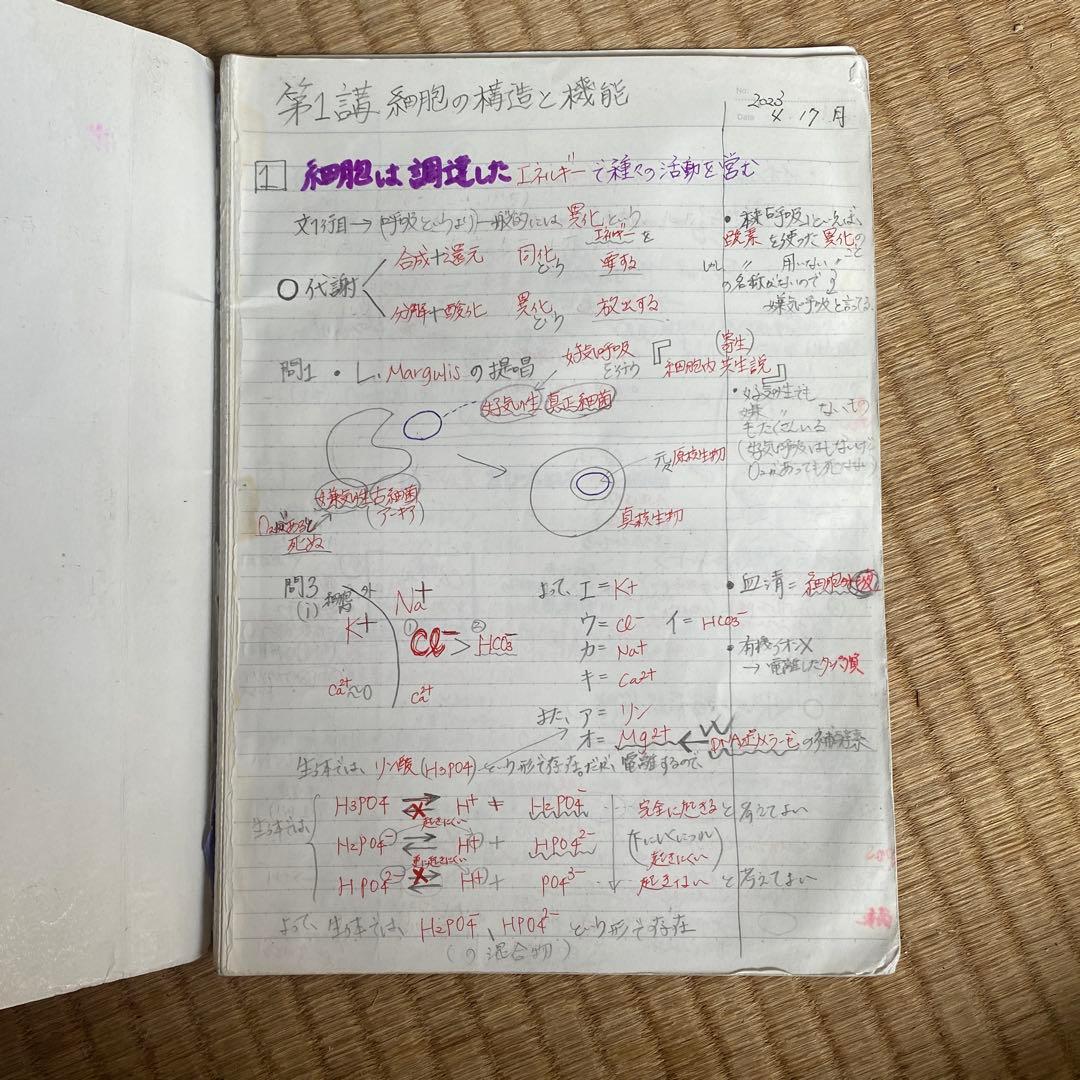 第1講 細胞の構造と機能
No.
Date
2023
4. 17 月
1 細胞は調達したエネルギーで種々の活動を営む
文1行目→(呼吸というより)一般的には異化という
○代謝
合成+還元 同化という エネルギーを要する
分解+酸化 異化という 放出する
・「呼吸」といえば、
酸素を使った異化のこと
〃 用いない 〃
の名称がないので
嫌気呼吸と言ってる。
問1 ・L. Margulisの提唱
好気呼吸を行う
『細胞内共生説』
(寄生)
好気性真正細菌
嫌気性古細菌
(アーキア)
O₂があると
死ぬ
元原核生物
真核生物
・好気性でも
嫌 〃 ないもの
もたくさんいる
(好気呼吸はしないけど
O₂があっても死なない)
問3
(i)
外
K+
Na+
① Cl⁻ > ② HCO₃⁻
Ca²⁺〜0
Ca²⁺
よって、エ=K+
ウ=Cl⁻ イ=HCO₃⁻
カ=Na+
キ=Ca2+
また、ア=リン
オ=Mg2+ ← DNAポリメラーゼの補酵素
・血清=細胞外液
・有機イオンX
→電離したタンパク質
生体では、リン酸(H3PO4)という形で存在だが、電離するので、
生体では、
H3PO4 ⇄ H+ + H2PO4⁻ 完全に起きると考えてよい
起きにくい
H2PO4⁻ ⇄ H+ + HPO4²⁻ (下にいくにつれ起きにくい)
更に起きにくい
HPO4²⁻ ⇄ H+ + PO4³⁻ 起きないと考えてよい
よって、生体では、H2PO4⁻、HPO4²⁻という形で存在
(の混合物)